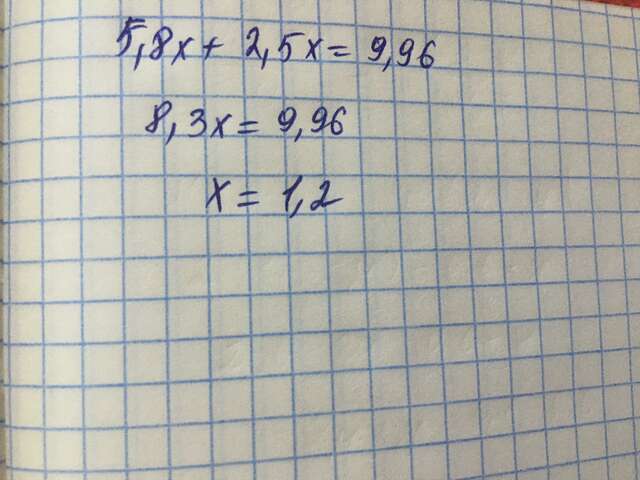 5,8x + 2,5x = 9,96
8,3x = 9,96
x = 1,2